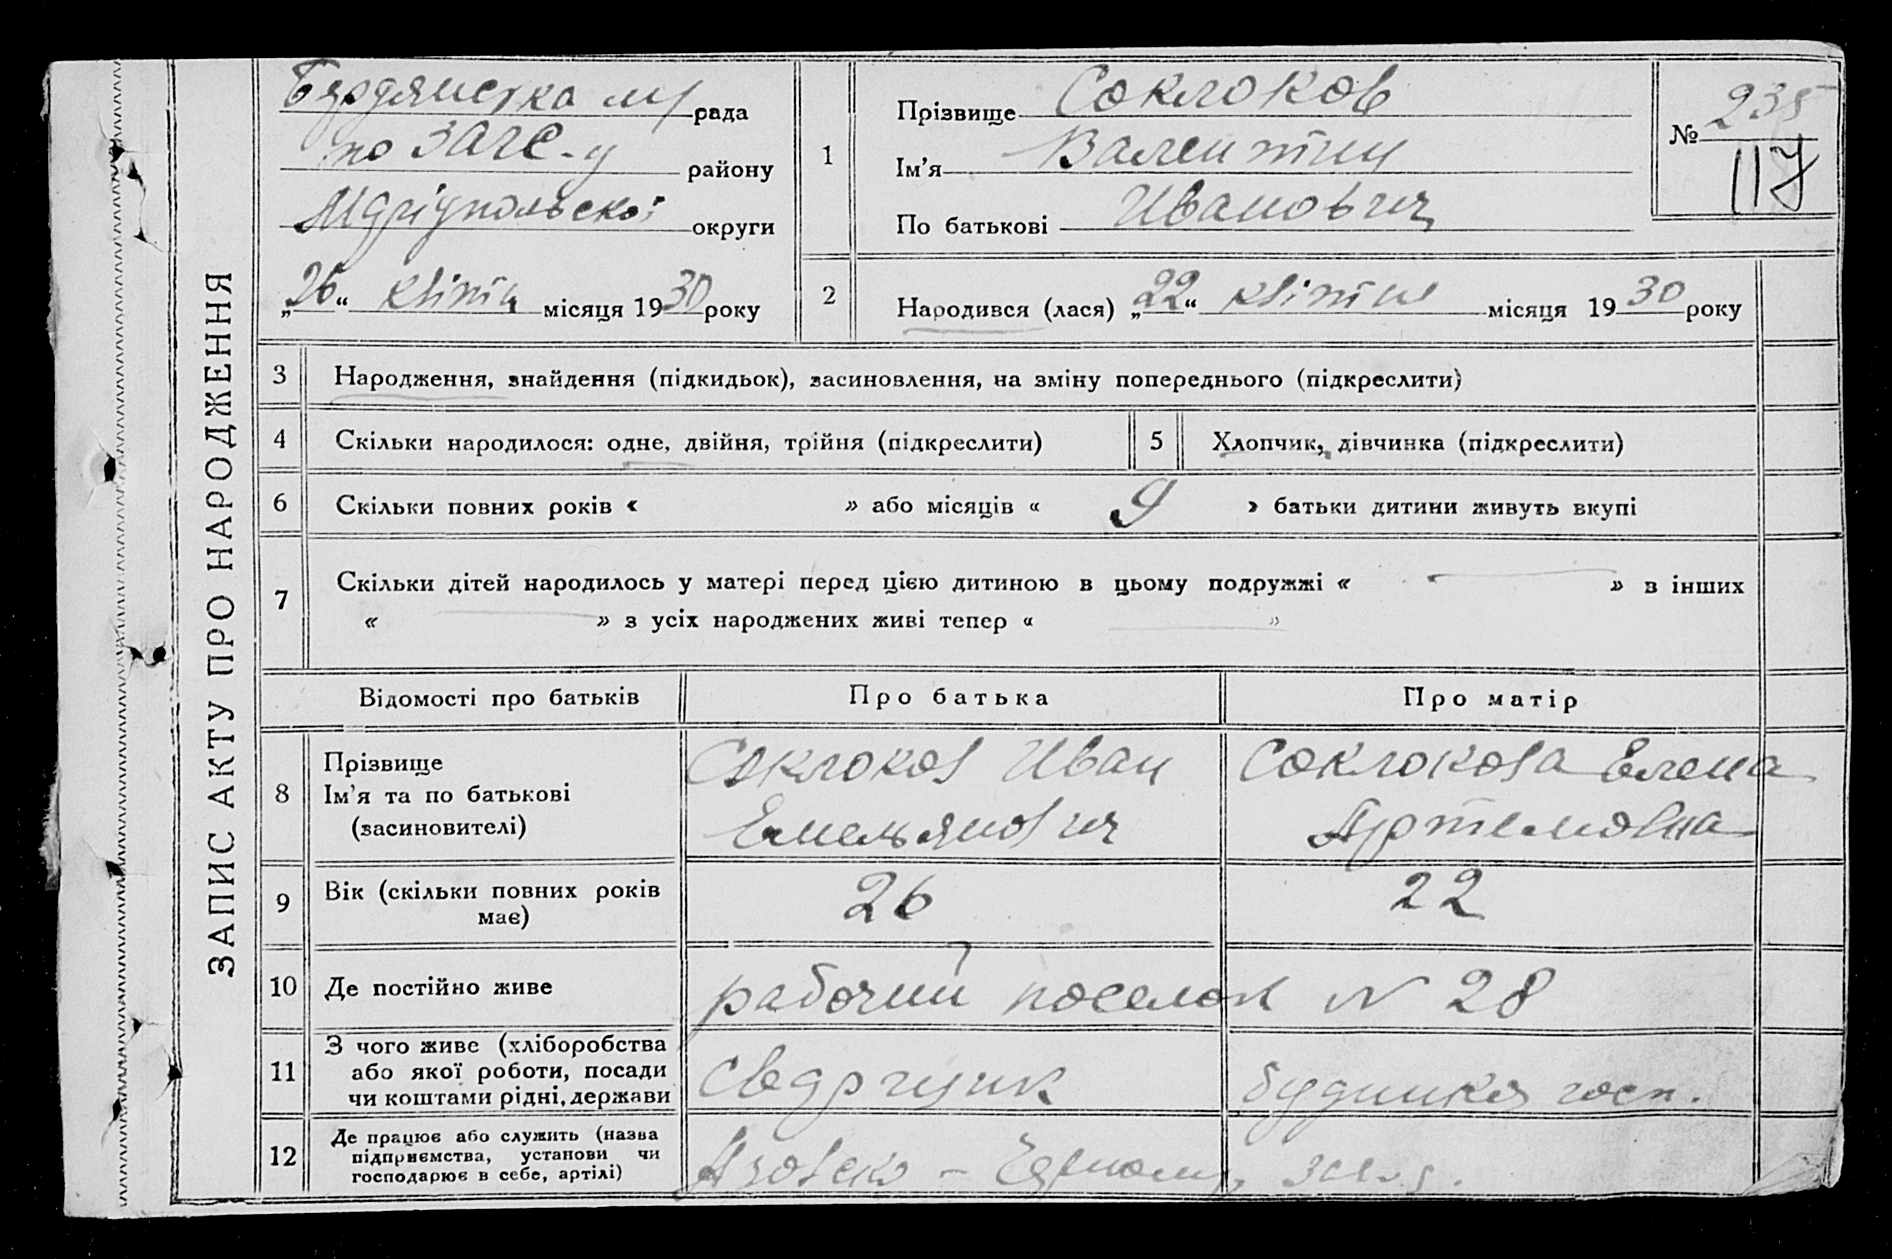 ЗАПИС АКТУ ПРО НАРОДЖЕННЯ
Бердянська рада
по ЗАГС-у району
Маріупольської округи
„26“ квітня місяця 1930 року
1
Прізвище Соклоков
Ім’я Валентин
По батькові Иванович
№ 235
117
2
Народився (лася) „22“ квітня місяця 1930 року
3 Народження, знайдення (підкидьок), засиновлення, на зміну попереднього (підкреслити)
4 Скільки народилося: одне, двійня, трійня (підкреслити) 5 Хлопчик, дівчинка (підкреслити)
6 Скільки повних років « » або місяців « 9 » батьки дитини живуть вкупі
7 Скільки дітей народилось у матері перед цією дитиною в цьому подружжі « — » в інших
« — » з усіх народжених живі тепер « — »
Відомості про батьків Про батька Про матір
8 Прізвище
Ім’я та по батькові
(засиновителі)
Соклоков Иван
Емельянович
Соклокова Елена
Артемовна
9 Вік (скільки повних років
має)
26 22
10 Де постійно живе рабочий поселок N 28
11 З чого живе (хліборобства
або якої роботи, посади
чи коштами рідні, держави
12 Де працює або служить (назва
підприємства, установи чи
господарює в себе, артілі)